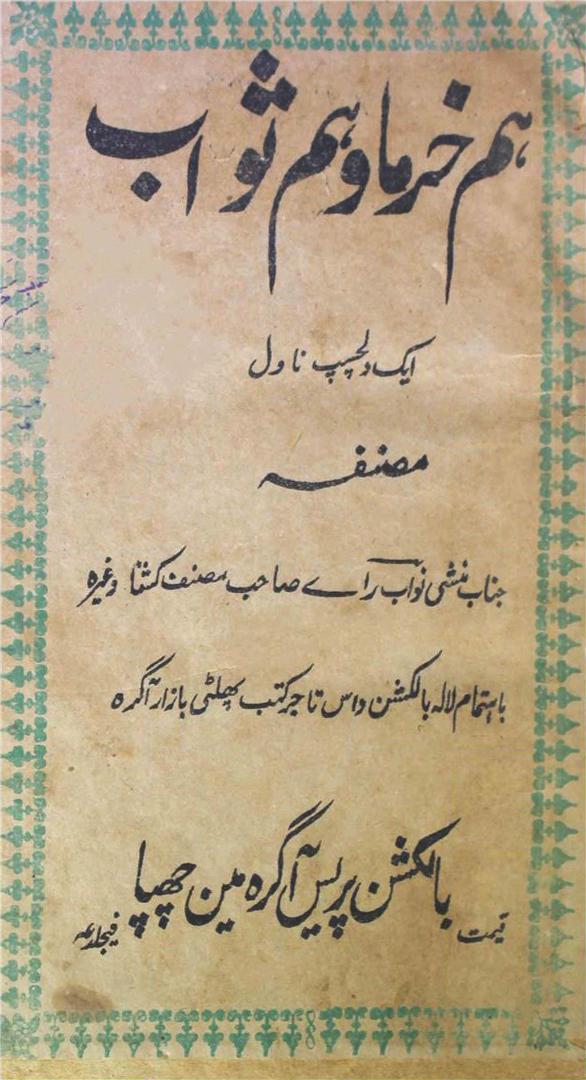 ہم خرما و ہم ثواب
ایک دلچسپ ناول
مصنفہ
جناب منشی نواب رائے صاحب مصنف کشنا وغیرہ
باہتمام لالہ بالکشن داس تاجر کتب پھلٹی بازار آگرہ
بالکشن پریس آگرہ مین چھپا
قیمت فیجلد